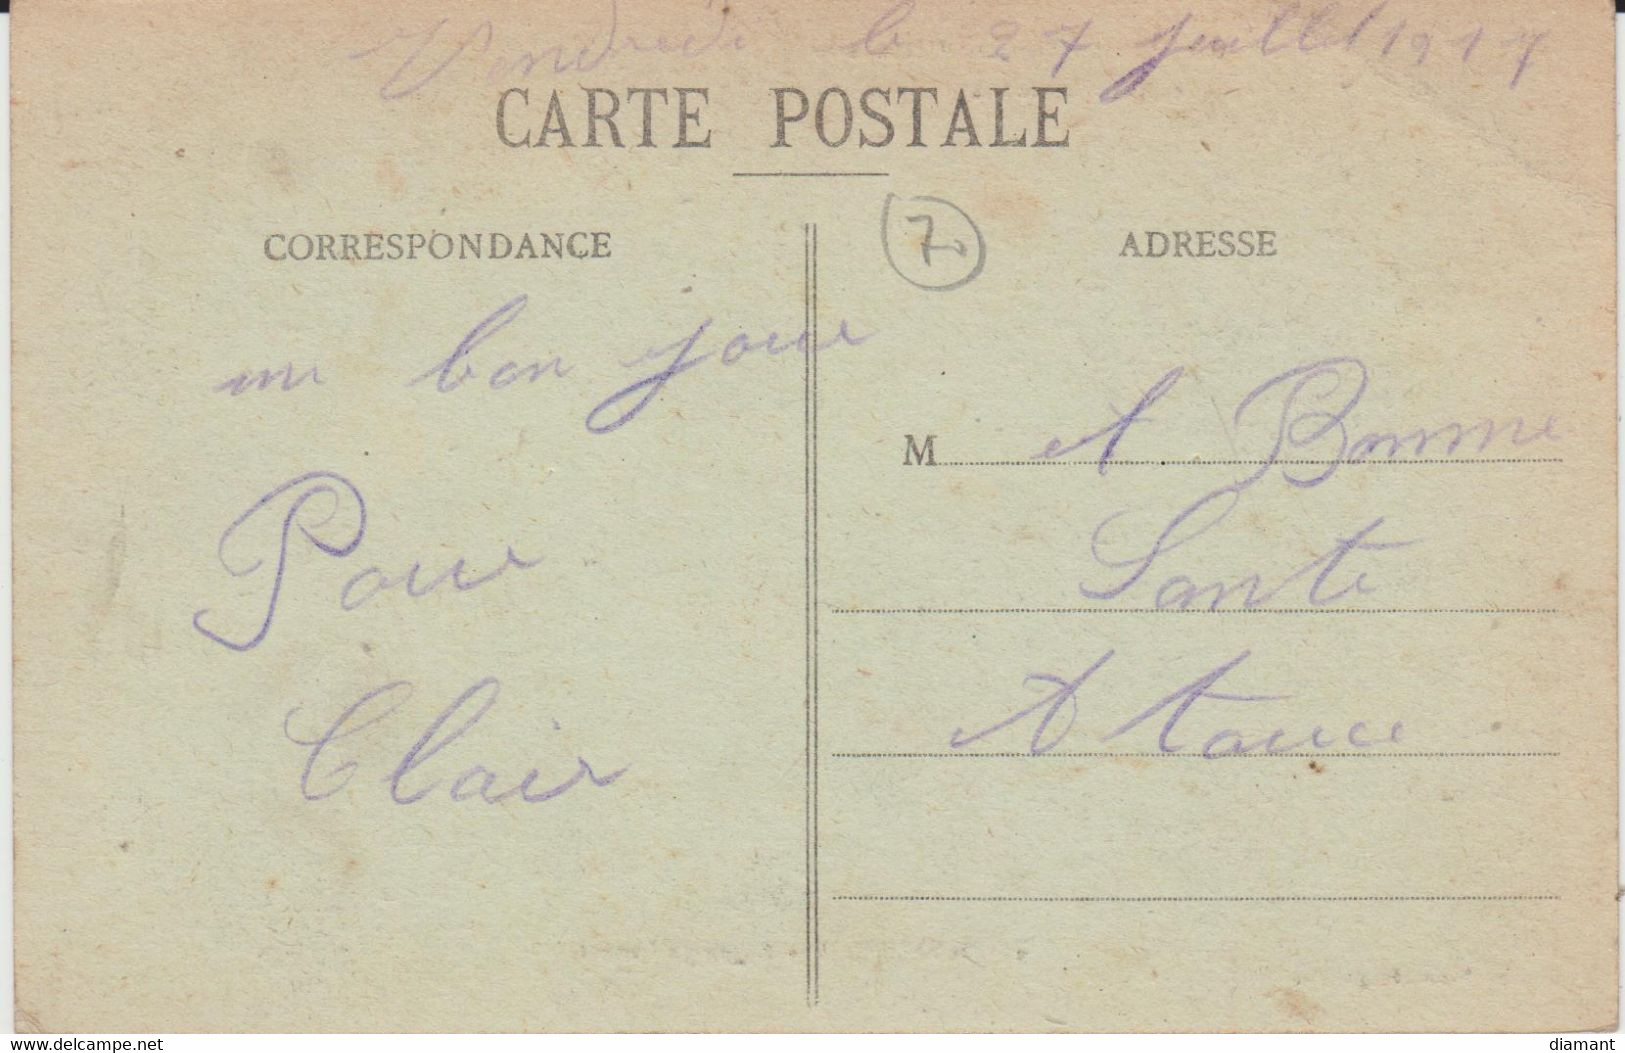 Vendredi le 27 Juillet 1917
CARTE POSTALE
CORRESPONDANCE
7
ADRESSE
un bon jour
Pour
Clair
M et Bonne
Sante
A tous
www.delcampe.net
diamant